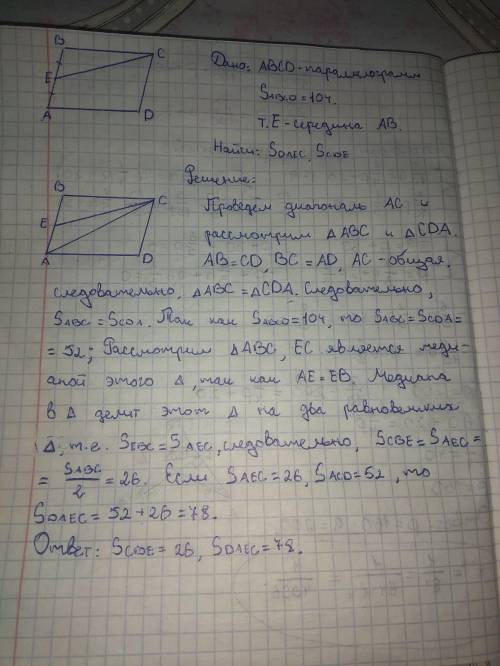 B
C
E
A
D
Дано: ABCD-параллелограмм
SABCD=104.
т.E-середина AB.
Найти: SDAEC, SCBE
Решение:
B
C
E
A
D
Проведём диагональ AC и
рассмотрим △ABC и △CDA.
AB=CD, BC=AD, AC-общая,
следовательно, △ABC=△CDA. Следовательно,
SABC=SCDA. Так как SABCD=104, то SABC=SCDA=
=52; Рассмотрим △ABC, EC является меди-
аной этого △, так как AE=EB. Медиана
в △ делит этот △ на два равновеликих
△, т.е. SEBC=SAEC, следовательно, SCBE=SAEC=
= SABC/2 = 26. Если SAEC=26, SACD=52, то
SDAEC=52+26=78.
Ответ: SCBE=26, SDAEC=78.